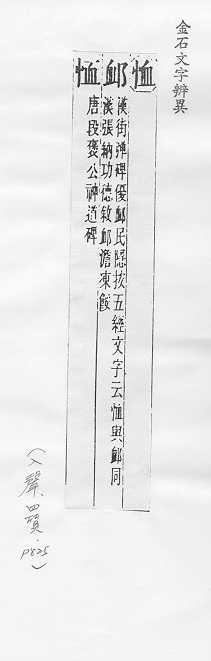 金石文字辨異
恤 卹 恤
漢街彈碑優卹民隱按五經文字云恤與卹同
漢張納功德敘卹澹凍餒
唐段褒公神道碑
(入聲四質.P825)